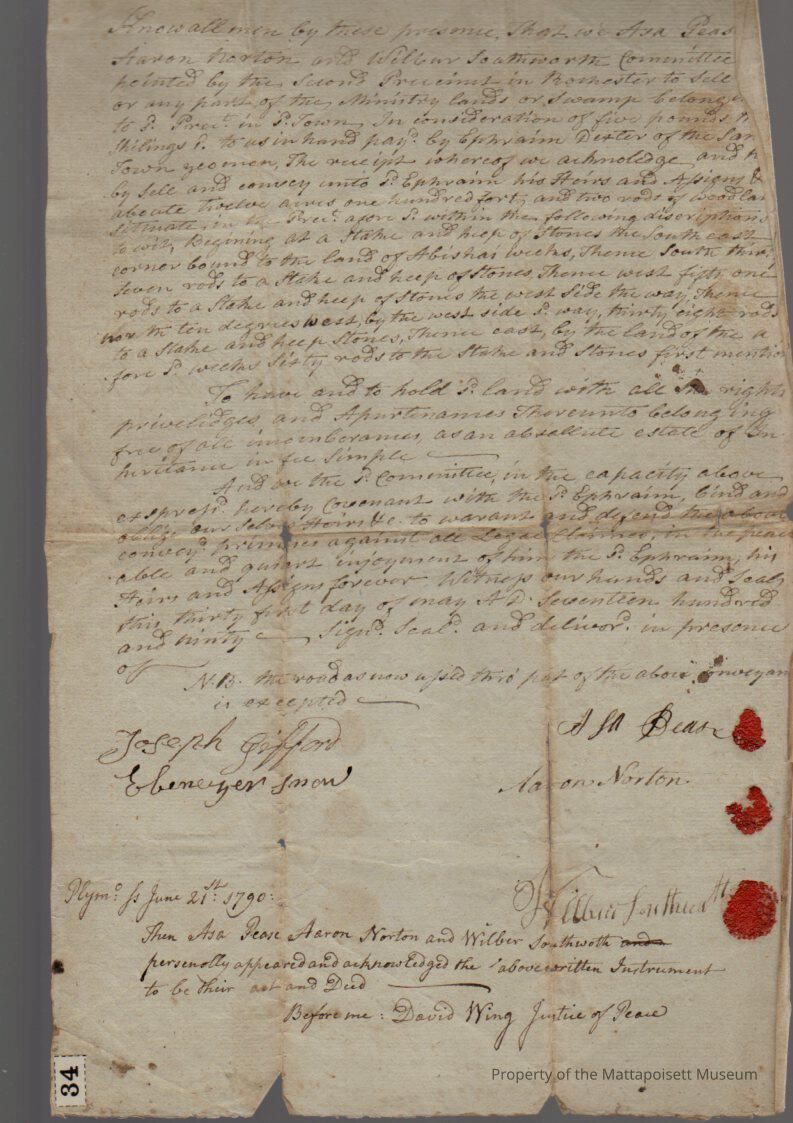 Know all men by these presence, That we Asa Peas
Aaron Norton and Wilbur Southworth Committee
pointed by the Second Precinct in Rochester to Sell
or any part of the Ministry lands or Swamp belong
to Sd. Prec.t in Sd. Town, In consideration of five pounds
Shilings Sd. to us in hand payd. by Ephraim Dexter of the Sam
Town yeomen, The receipt whereof we acknoledge and
by Sell and convey unto Sd. Ephraim his Heirs and Assigns
aboute twelve acres one hundred forty and two rods of woodlan
situate, in the Prec.t afore Sd. within the following discriptions
to wit, Begining at a Stake and heep of Stones the South east
corner bound to the land of Abishai weeks, Thence South thirty
Seven rods to a Stake and heep of Stones, Thence west fifty one
rods to a Stake and heep of Stones the west Side the way, Thence
north ten degrees west, by the west side Sd. way, thirty eight rods
to a Stake and heep Stones, Thence east, by the land of the a
fore Sd. weeks Sixty rods to the Stake and Stones first mention
To have and to hold Sd. land with all the rights
priveledges and Apurtenances Thereunto belonging
free of all incomberances, as an absollute estate of In
heritance in fee Simple
And we the Sd. Committee, in the capacity above
expressd. hereby Covenant with the Sd. Ephraim, bind and
oblige our Selves Heirs &c. to warant and defend the above
conveyd. primises against all Legal Claimes, in the peace
able and quiart injoyment of him the Sd. Ephraim, his
Heirs and Assigns forever Witness our hands and Seals
this thirty first day of may A D. Seventeen hundred
and ninty Signd. Seald. and deliverd. in presence
of
N.B. the road as now used thro' part of the above conveyan
is excepted
Joseph Gifford
Asa Pease
Ebenezer Snow
Aaron Norton
Wilbur Southworth
Plymo. Ss June 21st. 1790:
Then Asa Pease Aaron Norton and Wilber Southwoth and
personolly appeared and acknowledged the above written Instrument
to be their act and Deed
Before me: David Wing Justice of Peace
34
Property of the Mattapoisett Museum